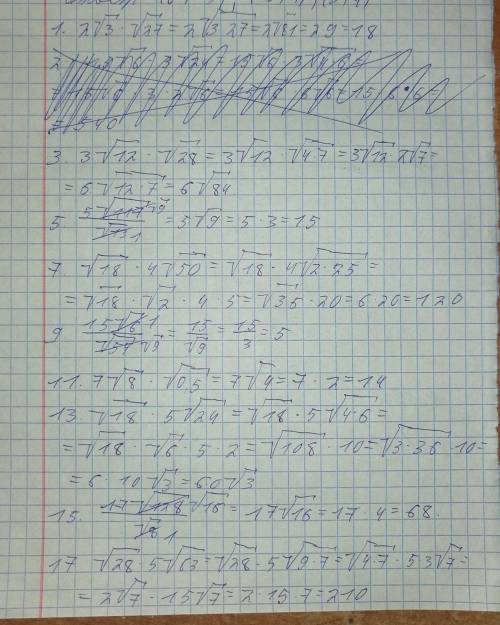 1. 2√3 · √27 = 2√3·27 = 2√81 = 2·9 = 18
3 3√12 · √28 = 3√12 · √4·7 = 3√12 · 2√7 =
= 6√12·7 = 6√84
5 5√117 √9 / √13 1 = 5√9 = 5·3 = 15
7 √18 · 4√50 = √18 · 4√2·25 =
= √18 · √2 · 4 · 5 = √36 · 20 = 6·20 = 120
9 15√6 1 / √54 √9 = 15/√9 = 15/3 = 5
11. 7√8 · √0,5 = 7√4 = 7 · 2 = 14
13. √18 · 5√24 = √18 · 5√4·6 =
= √18 · √6 · 5 · 2 = √108 · 10 = √3·36 · 10 =
= 6 · 10√3 = 60√3
15. 17√128 √16 / √8 1 = 17√16 = 17 · 4 = 68.
17 √28 · 5√63 = √28 · 5√9·7 = √4·7 · 5·3√7 =
= 2√7 · 15√7 = 2 · 15 · 7 = 210